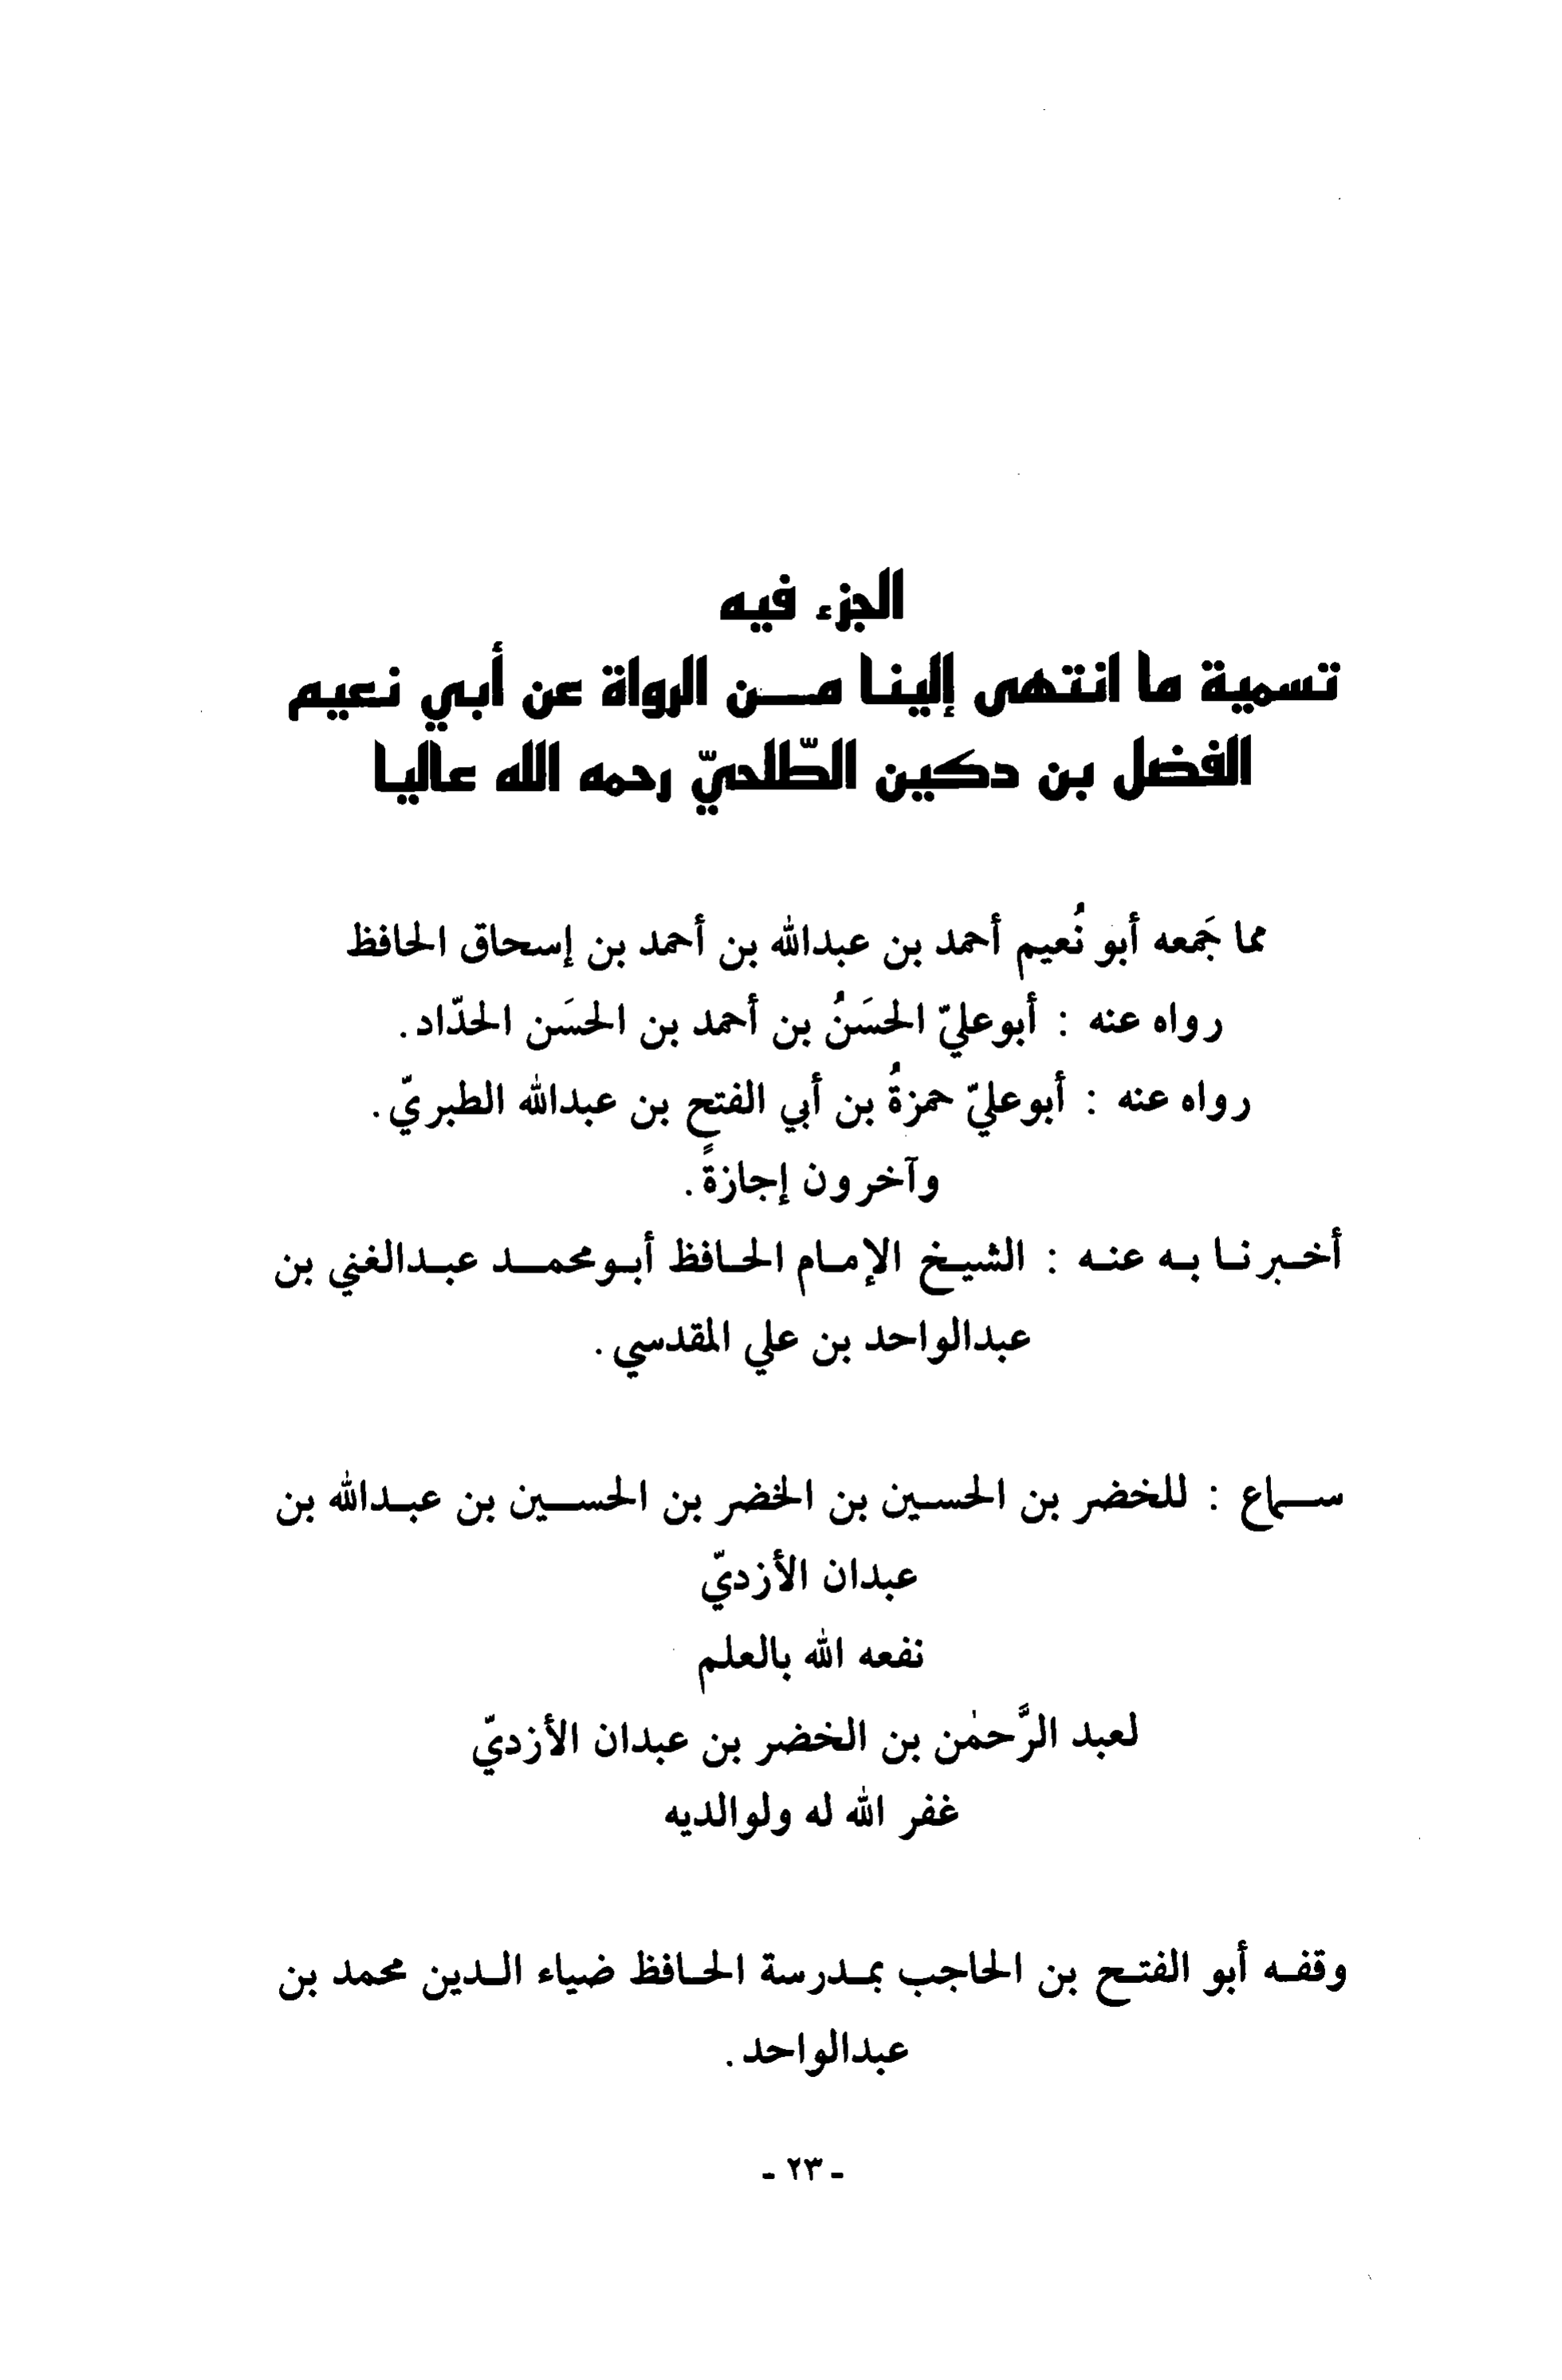 الجزء فيه
تسمية ما انتهى إلينا من الرواة عن أبي نعيم
الفضل بن دكين الطّلحيّ رحمه الله عاليا
مما جَمعه أبو نُعيم أحمد بن عبدالله بن أحمد بن إسحاق الحافظ
رواه عنه : أبوعليّ الحسَنُ بن أحمد بن الحسَن الحدّاد .
رواه عنه : أبوعليّ حمزةُ بن أبي الفتح بن عبدالله الطبريّ .
وآخرون إجازةً .
أخبرنا به عنه : الشيخ الإمام الحافظ أبومحمد عبدالغني بن
عبدالواحد بن علي المقدسي .
سماع : للخضر بن الحسين بن الخضر بن الحسين بن عبدالله بن
عبدان الأزديّ
نفعه الله بالعلم
لعبد الرَّحمٰن بن الخضر بن عبدان الأزديّ
غفر الله له ولوالديه
وقفه أبو الفتح بن الحاجب بمدرسة الحافظ ضياء الدين محمد بن
عبدالواحد .
- ٢٣ -